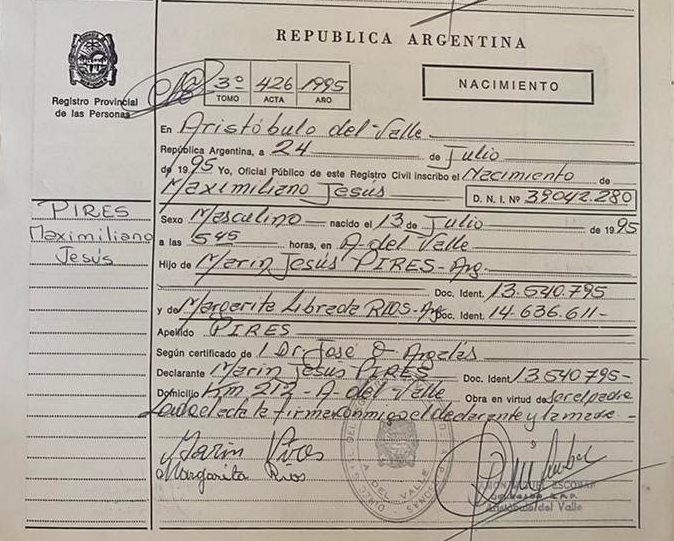 REPUBLICA ARGENTINA
Registro Provincial
de las Personas
3º 426 1995
TOMO ACTA AÑO
NACIMIENTO
En Aristóbulo del Valle
República Argentina, a 24 de Julio
de 1995 Yo, Oficial Público de este Registro Civil inscribo el Nacimiento de
Maximiliano Jesús D. N. I. Nº 39042.280
PIRES
Maximiliano
Jesús
Sexo Masculino nacido el 13 de Julio de 1995
a las 545 horas, en A. del Valle
Hijo de Marin Jesús PIRES - Arg.
Doc. Ident. 13.540.795
y de Margarita Librada RIOS - Arg. Doc. Ident. 14.636.611-
Apellido PIRES
Según certificado de Dr. José
Declarante Marin Jesús PIRES Doc. Ident 13.540.795-
Domicilio Km. 212 - A. del Valle Obra en virtud de ser el padre
la firman conmigo el declarante y la madre -
Marin Pires
Margarita Rios
ESCOBAR
Aristóbulo del Valle
A DEL VALLE